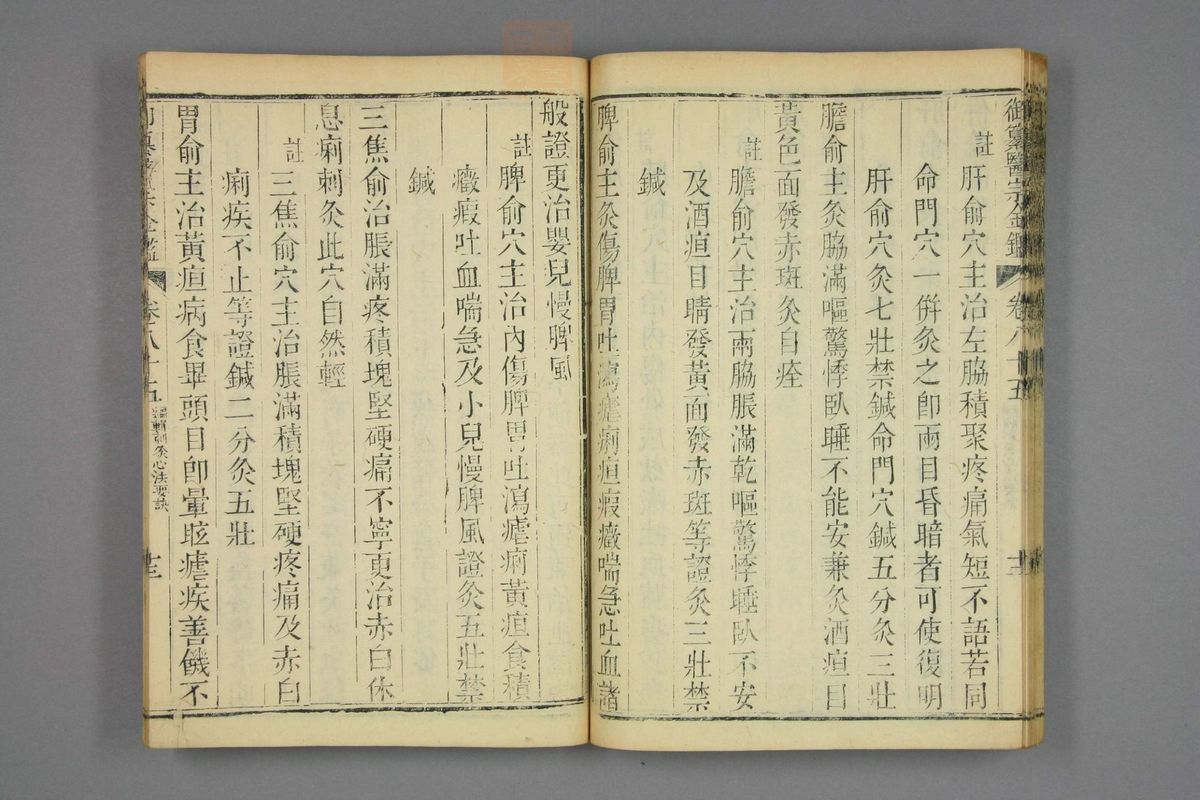 御纂醫宗金鑑 卷八十五 十二
註 肝俞穴主治左脇積聚疼痛氣短不語若同
命門穴一併灸之卽兩目昏暗者可使復明
肝俞穴灸七壯禁鍼命門穴鍼五分灸三壯
膽俞主灸脇滿嘔驚悸臥睡不能安兼灸酒疸目
黃色面發赤斑灸自痊
註 膽俞穴主治兩脇脹滿乾嘔驚悸睡臥不安
及酒疸目睛發黃面發赤斑等證灸三壯禁
鍼
脾俞主灸傷脾胃吐瀉瘧痢疸瘕癥喘急吐血諸
般證更治嬰兒慢脾風
註 脾俞穴主治內傷脾胃吐瀉瘧痢黃疸食積
癥瘕吐血喘急及小兒慢脾風證灸五壯禁
鍼
三焦俞治脹滿疼積塊堅硬痛不寧更治赤白休
息痢刺灸此穴自然輕
註 三焦俞穴主治脹滿積塊堅硬疼痛及赤白
痢疾不止等證鍼二分灸五壯
胃俞主治黃疸病食畢頭目卽暈眩瘧疾善饑不
卷八十五 編輯刺灸心法要訣 十三